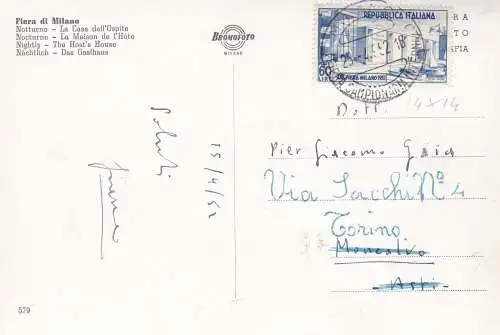 Fiera di Milano
Notturno - La Casa dell'Ospite
Nocturne - La Maison de l'Hôte
Nightly - The Host's House
Nächtlich - Das Gasthaus
Bromofoto
MILANO
REPUBBLICA ITALIANA
60 LIRE
FIERA MILANO 1952
CAMPIONARIA
RA
TO
FIA
14x14
Dott.
Pier Giacomo Gaia
Via Sacchi N° 4
Torino
Moncalvo
Asti
Saluti
15/4/52
579